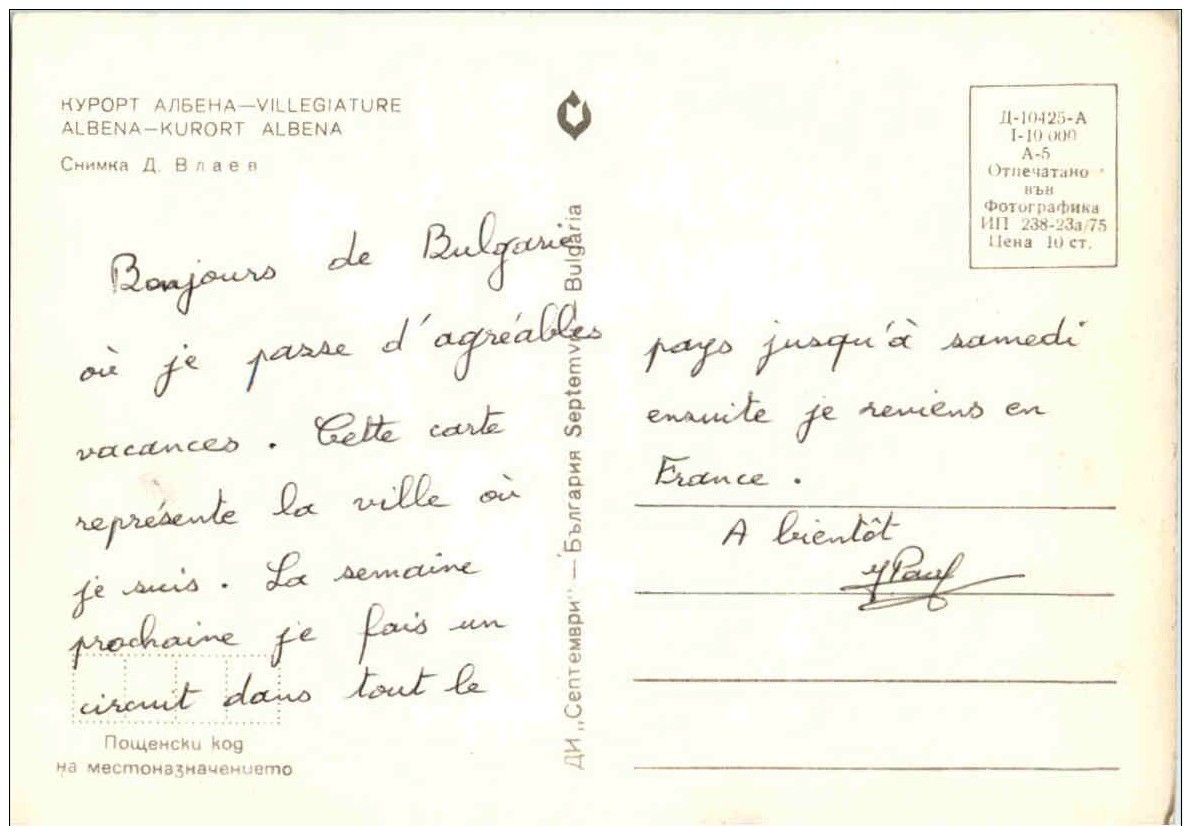 КУРОРТ АЛБЕНА—VILLEGIATURE
ALBENA—KURORT ALBENA
Снимка Д. Влаев
Bonjours de Bulgarie
où je passe d'agréables
vacances. Cette carte
représente la ville où
je suis. La semaine
prochaine je fais un
circuit dans tout le
Пощенски код
на местоназначението
ДИ „Септември" — България Septemvri Bulgaria
Д-10425-А
I-10 000
А-5
Отпечатано
във
Фотографика
ИП 238-23а/75
Цена 10 ст.
pays jusqu'à samedi
ensuite je reviens en
France.
A bientôt
JPaul